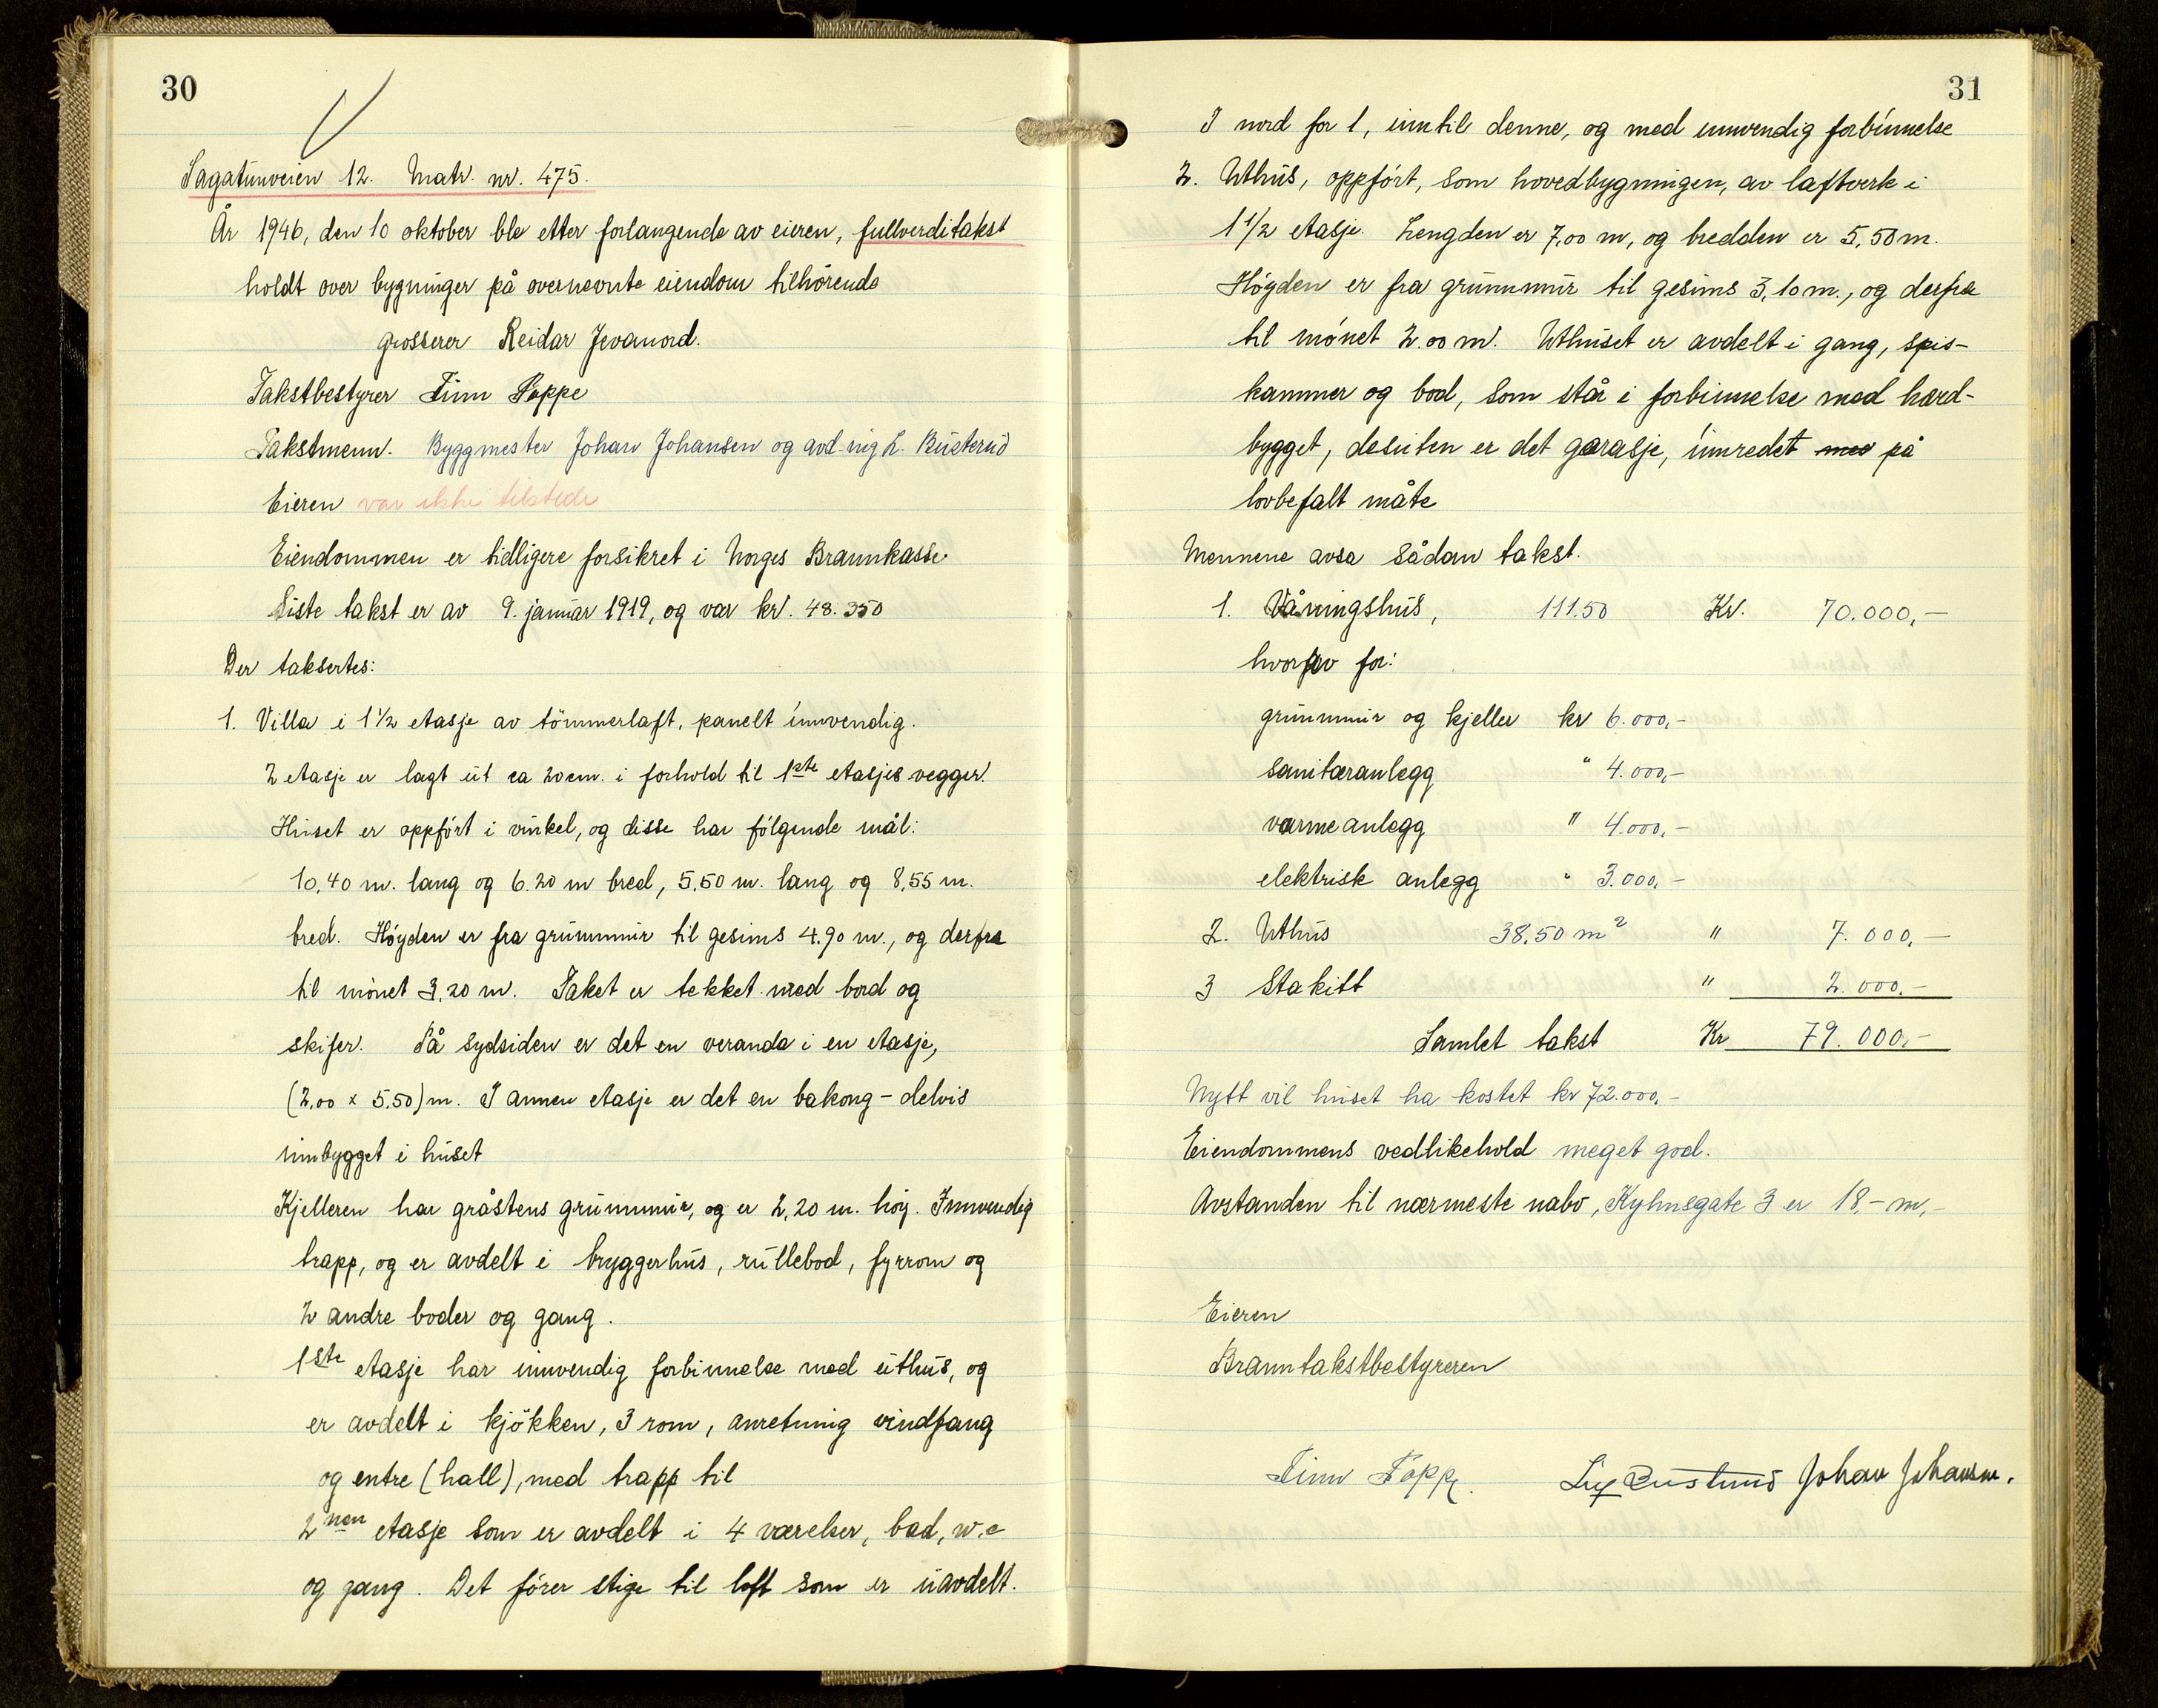 30
Sagatunveien 12. Matr. nr. 475.
År 1946, den 10 oktober ble etter forlangende av eieren, fullverditakst
holdt over bygninger på overnevnte eiendom tilhørende
grosserer Reidar Jevanord.
Takstbestyrer Finn Poppe
Takstmenn. Byggmester Johan Johansen og avd. ing L. Busterud
Eieren var ikke tilstede
Eiendommen er tidligere forsikret i Norges Brannkasse
Siste takst er av 9. januar 1919, og var kr. 48.350
Der taksertes:
1. Villa i 1 1/2 etasje av tömmerlaft, panelt innvendig.
2 etasje er lagt ut ca 20 cm. i forhold til 1ste etasjes vegger.
Huset er oppført i vinkel, og disse har følgende mål:
10,40 m. lang og 6.20 m bred, 5,50 m. lang og 8,55 m.
bred. Høyden er fra grunnmur til gesims 4.90 m., og derfra
til mønet 3,20 m. Taket er tekket med bord og
skifer. På sydsiden er det en veranda i en etasje,
(2,00 x 5,50) m. I annen etasje er det en bakong - delvis
innbygget i huset
Kjelleren har gråstens grunnmur, og er 2,20 m. høy. Innvendig
trapp, og er avdelt i bryggerhus, rullebod, fyrrom og
2 andre boder og gang.
1ste etasje har innvendig forbinnelse med uthus, og
er avdelt i kjøkken, 3 rom, anretning vindfang
og entre (hall), med trapp til
2nen etasje som er avdelt i 4 værelser, bad, w.c
og gang. Det fører stige til loft som er uavdelt.
31
I nord for 1, inntil denne, og med innvendig forbinnelse
2. Uthus, oppført, som hovedbygningen, av laftverk i
1 1/2 etasje. Lengden er 7,00 m, og bredden er 5,50 m.
Høyden er fra grunnmur til gesims 3,10 m., og derfra
til mønet 2.00 m. Uthuset er avdelt i gang, spis-
kammer og bod, som står i forbinnelse med hoved-
bygget, desuten er det garasje, innredet med på
lovbefalt måte
Mennene avsa sådan takst.
1. Våningshus, 111.50 Kr. 70.000,-
hvorav for:
grunnmur og kjeller kr 6.000,-
sanitæranlegg " 4.000,-
varmeanlegg " 4.000,-
elektrisk anlegg " 3.000,-
2. Uthus 38,50 m² " 7.000,-
3 Stakitt " 2.000,-
Samlet takst Kr 79.000,-
Nytt vil huset ha kostet kr 72.000,-
Eiendommens vedlikehold meget god.
Avstanden til nærmeste nabo, Kyhnsgate 3 er 18,- m,-
Eieren
Branntakstbestyreren
Finn Poppe. Busterud Johan Johansen.